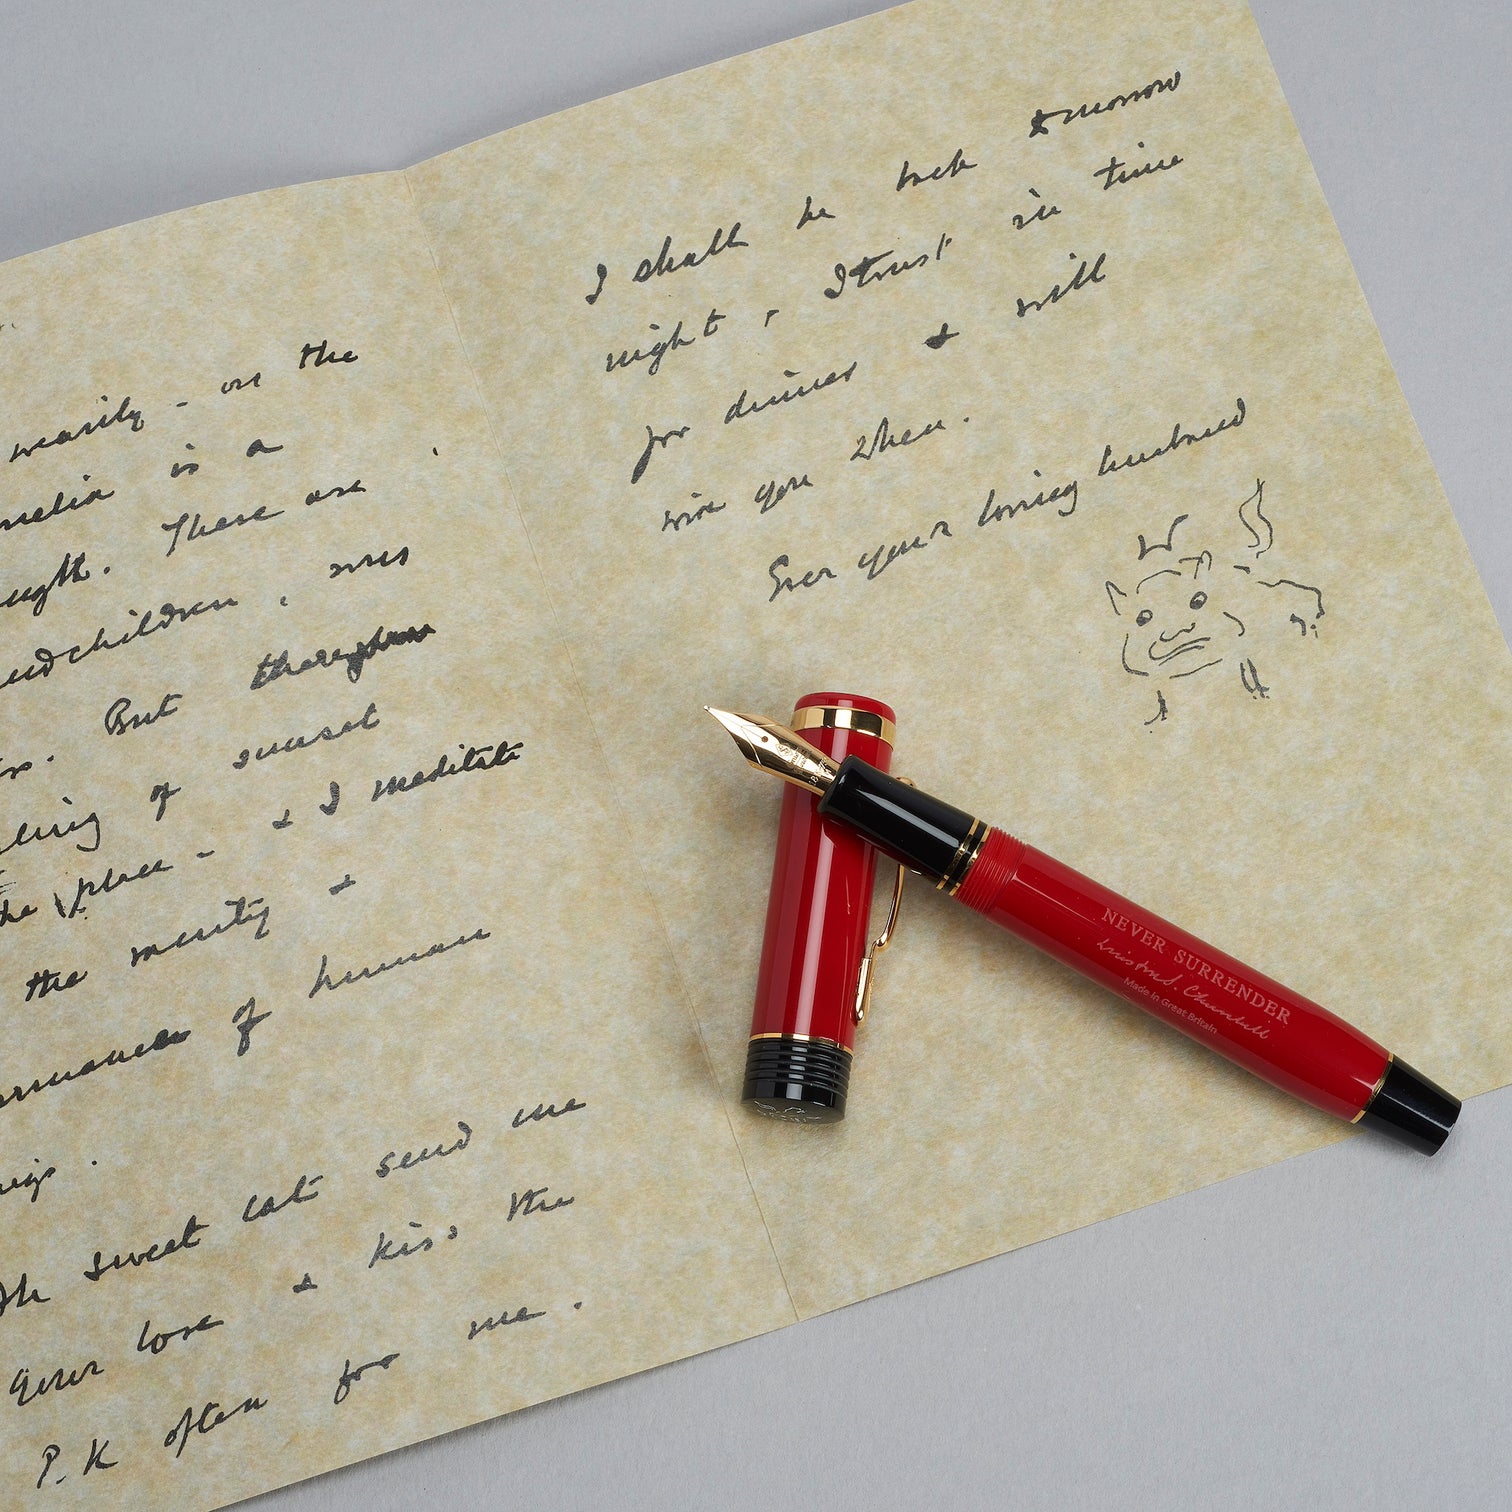 wearily - on the
melia is a
ugth. There are
ndchildren, sons
But
ling of sunset
he place - & I meditate
the vanity &
of human
Oh sweet cat send me
your love & kiss the
P.K often for me.
I shall be back tomorrow
night, I trust in time
for dinner & will
wire you when.
Ever your loving husband
W
NEVER SURRENDER
Winston S. Churchill
Made in Great Britain